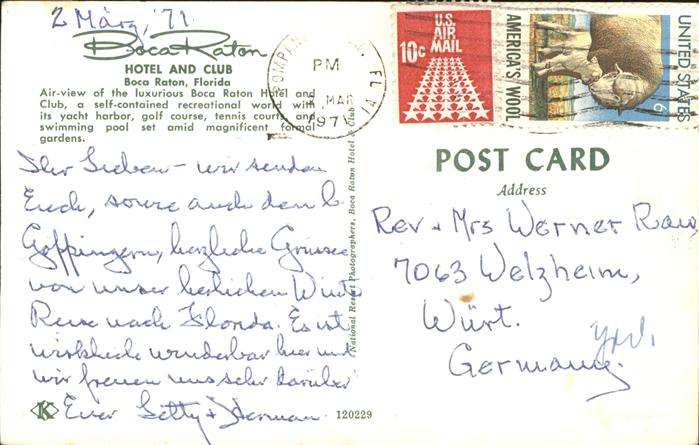 2 März, '71
Boca Raton
HOTEL AND CLUB
Boca Raton, Florida
Air-view of the luxurious Boca Raton Hotel and
Club, a self-contained recreational world with
its yacht harbor, golf course, tennis courts and
swimming pool set amid magnificent formal
gardens.
Ihr Lieben - wir senden
Euch, sowie auch den l.
Göppingern, herzliche Grüsse
von unser herrlichen Winter
Reise nach Florida. Es ist
wirklich wunderbar hier und
wir freuen uns sehr darüber
Euer Betty + Herman
K
120229
National Resort Photographers, Boca Raton Hotel & Club
PM
MAR
1971
FL
U.S.
AIR
MAIL
10c
AMERICA'S WOOL
UNITED STATES
6
POST CARD
Address
Rev + Mrs Werner Rau,
7063 Welzheim,
Württ.
Germany.